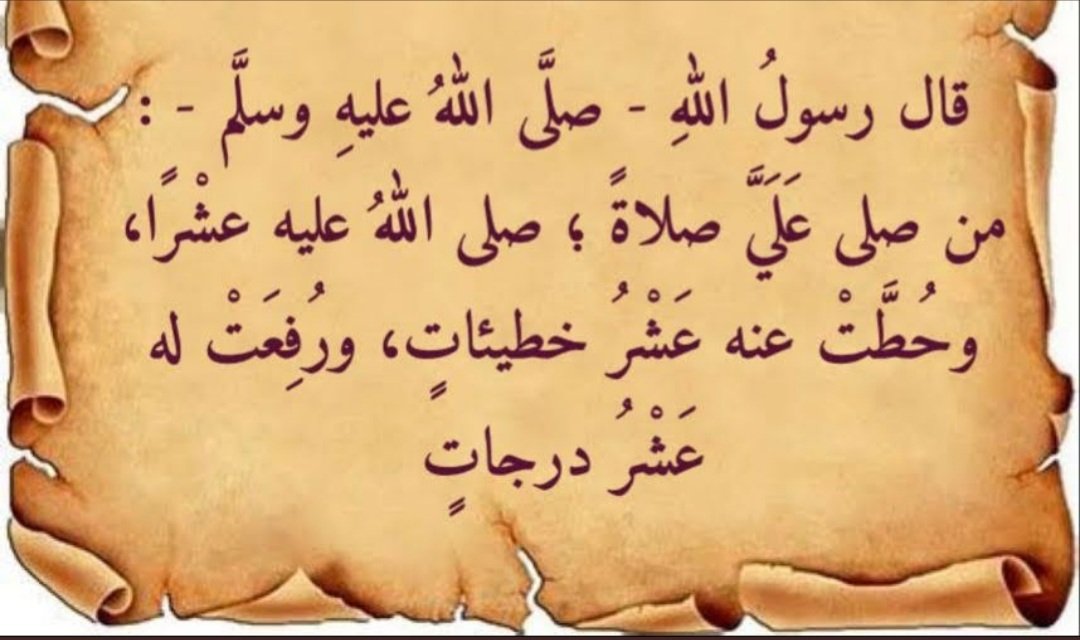 قال رسولُ اللهِ - صلَّى اللهُ عليهِ وسلَّم - :
من صلى عَلَيَّ صلاةً ؛ صلى اللهُ عليه عشْرًا،
وحُطَّتْ عنه عَشْرُ خطيئاتٍ، ورُفِعَتْ له
عَشْرُ درجاتٍ